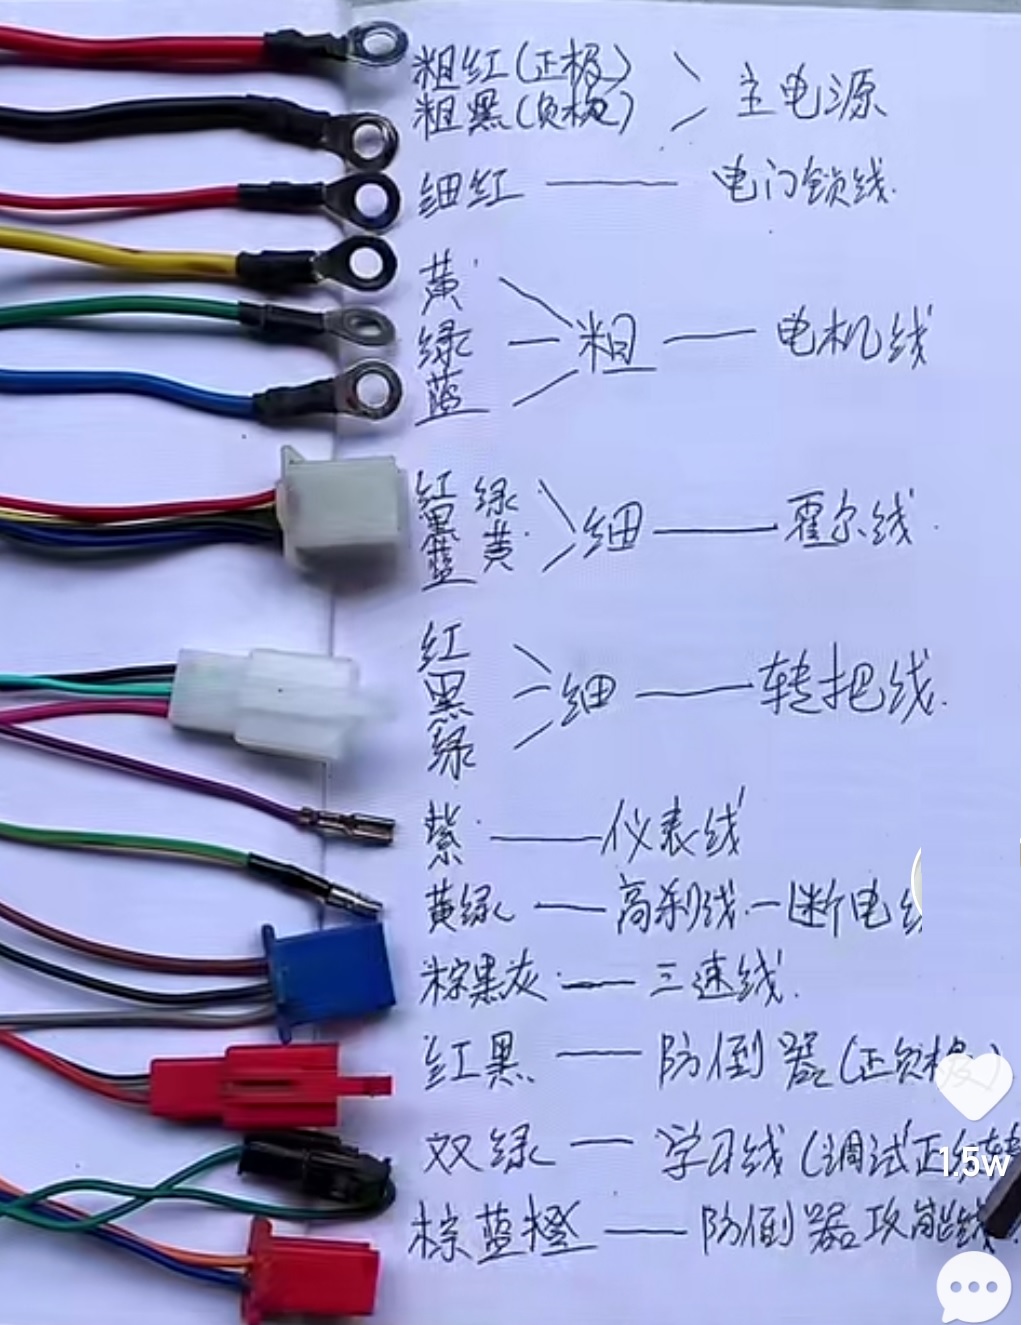 粗红(正极)
粗黑(负极)
主电源
细红 —— 电门锁线.
黄
绿
蓝
粗 —— 电机线
红 绿
黑
蓝 黄
细 —— 霍尔线.
红
黑
绿
细 —— 转把线.
紫 —— 仪表线
黄绿 —— 高刹线一断电
棕黑灰 —— 三速线.
红黑 —— 防倒器(正负极)
双绿 —— 学习线(调试正
1.5w
棕蓝橙 —— 防倒器攻能线